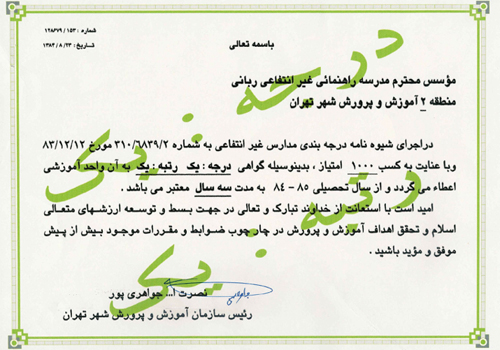 شماره : ۱۵۳/ ۱۲۸۶۷۹
تاریخ : ۱۳۸۴/۸/۲۳
باسمه تعالی
مؤسس محترم مدرسه راهنمائی غیر انتفاعی ربانی
منطقه ۲ آموزش و پرورش شهر تهران
دراجرای شیوه نامه درجه بندی مدارس غیر انتفاعی به شماره ۳۱۰/۶۸۳۹/۲ مورخ ۸۳/۱۲/۱۲
وبا عنایت به کسب ۱۰۰۰ امتیاز ، بدینوسیله گواهی درجه : یک رتبه : یک به آن واحد آموزشی
اعطاء می گردد و از سال تحصیلی ۸۵ - ۸۴ به مدت سه سال معتبر می باشد .
امید است با استعانت از خداوند تبارک و تعالی در جهت بسط و توسعه ارزشهای متعالی
اسلام و تحقق اهداف آموزش و پرورش در چار چوب ضوابط و مقررات موجود بیش از پیش
موفق و مؤید باشید .
درجه : یک
رتبه : یک
نصرت ا... جواهری پور
رئیس سازمان آموزش و پرورش شهر تهران